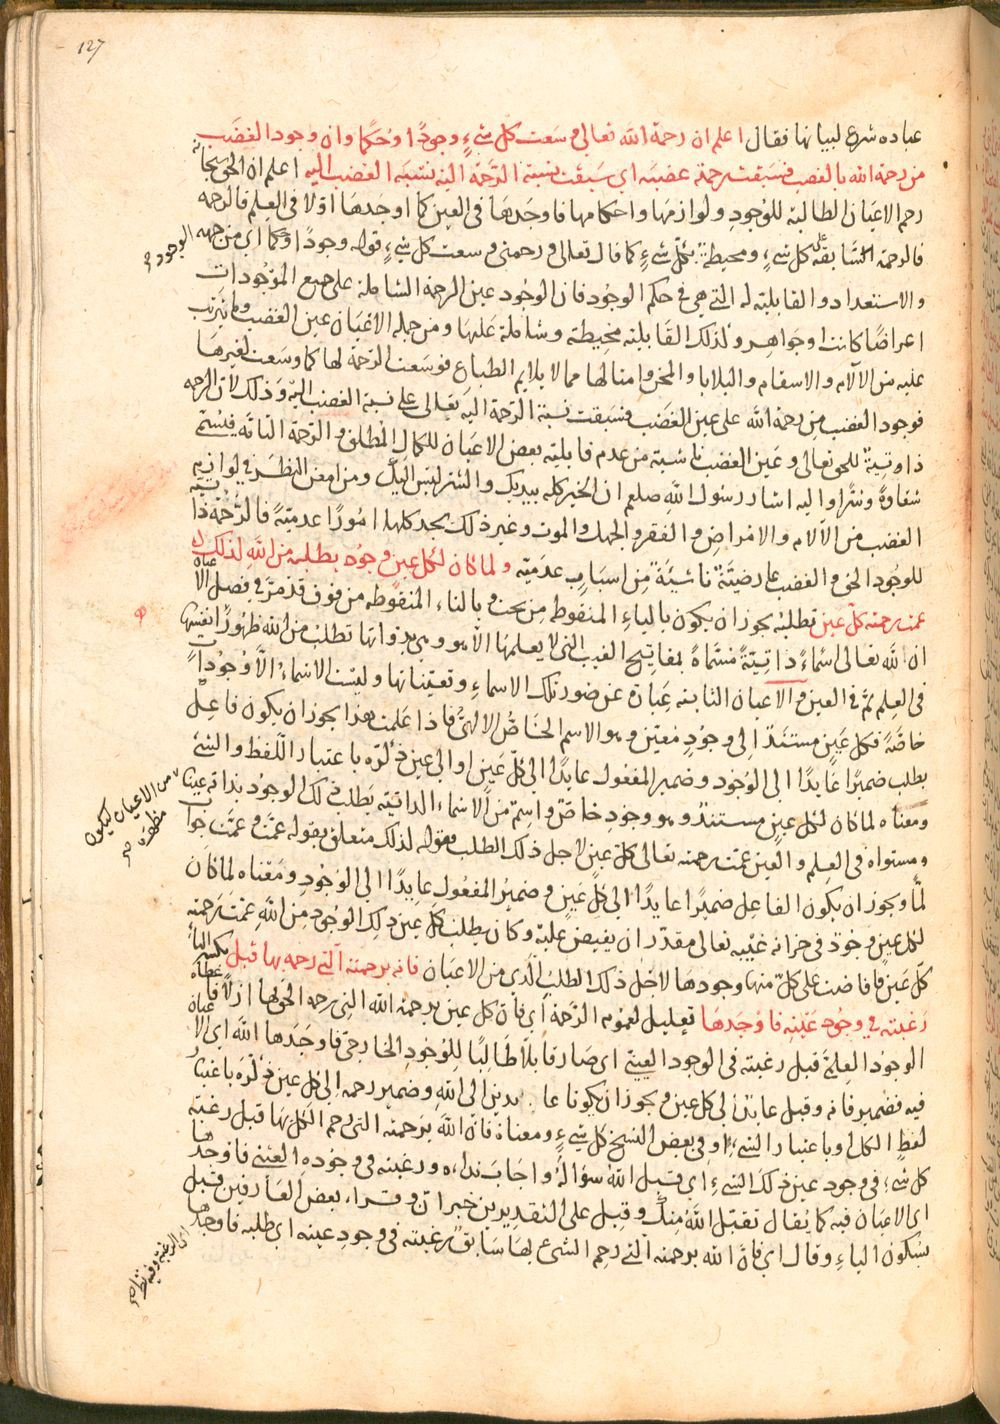 127
عباده شرع لبيانها فقال اعلم ان رحمة الله تعالى وسعت كل شيءٍ وجودًا وحُكمًا وان وجود الغضَب
من رحمة الله بالغضب فسَبقت رحمته غضبَه اى سَبقَت نسبَة الرَّحمَة اليه نسبَة الغضب اليه اعلم ان الحق سبحانه
رحم الاعيَان الطالبَة للوُجودِ ولوازمَها واحكامها فاوجَدهَا فى العين كما اوجدَهَا اوّلا فى العِلم فالرحمه
فالرحمة السَّابقة على كل شيءٍ ومحيطةٌ بكلّ شيءٍ كما قال تعالى ورحمتى وسعت كل شيءٍ قوله وجودًا وحُكمًا اى من جهه
الوجود صح
والاستعداد والقابليّة له التى هى فى حكم الوجُود فان الوجُود عين الرحمة الشاملة على جميع الموَجُودات
اعراضًا كانت او جواهر وكذلك القَابلية محِيطة وشاملة عَليهَا ومن جمله الاعيَان عين الغضب وما يترتب
عليه من الآلام والاسقام والبلايا والمحن وامثالها مما لا يلايم الطباع فوسَعت الرّحمَة لها كما وسَعت لغيرهَا
فوجود الغضب من رحمة الله على عين الغضَب فسَبقت نسبَة الرّحمَة اليَه تعَالى على نسبة الغضَب اليَه وذلك لان الرحمه
ذاوتيةٌ للحق تعالى وعَين الغضب ناشية من عدم قابليَة بعض الاعيان للكمال المُطلق والرّحمَة التامّة فيُسمّى
شقاوةً وشرًّا واليه اشار رسول الله صلعم ان الخير كله بيديك والشّر ليس اليكَ ومن امعن النظَر فى لوازم
الغضب من الآلام والامراض والفقر والجهل والموت وغير ذلك يجد كلها امُورًا عدميّةً فالرَّحمَة ذاتية
للوجُود الحق والغضب عارضيَّة ناشيَةٌ مِن اسبَابٍ عدَميّه ولما كان لكل عينٍ وجُود يطلبه من اللهِ لذلك
عمت رحمته كلّ عين تطلبُه يجوز ان يكون بالياءِ المنقوطة مِن تحت وبالتاء المنقوطه من فوق قد مرَّ فى فصل الا
ان لله تعالى اسْماءً ذاتيَّةً مُسَمّاةً بمفاتيح الغيب التى لا يعلمهَا الا هو وهى بذواتها تطلبُ من الله ظهُورًا انفسَها
فى العِلم ثمّ فى العين والاعيان الثابته عِبَارة عَن صُور تلك الاسماءِ وتعيّناتها وليسَت الاسماءُ الّا وُجُودا
خاصَّةً فكل عَينٍ مستنَدة الى وجُودٍ معَيّن وهو الاسم الخاصُّ الالهىُّ فاذا عَلمت هذا يجوز ان يكون فاعل
يطلب ضميرًا عَايدًا الى الوُجود وضمير المفعُول عايدًا الى كلّ عَينٍ او الى عين ذكّره باعتبار اللّفظ والشئ
ومعناه لما كان لكل عينٍ مستندٌ وهو وجودٍ خاصّ واسِمٌ من الاسماءِ الذاتيّة يَطلب ذلكَ الوجُود بذاته عينا
من الاعيان ليكون مظهره صح
ومستواه فى العِلم والعَين عمّت رحمته تعالى كلّ عَينٍ لاجل ذلك الطلب فقوله لذلك متعلق بقوله عمَّت وعمَّت جواب
لمَّا ويجوز ان يكون الفاعِل ضميرًا عايدًا الى كلّ عَينٍ وضميرُ المفعُول عايدًا الى الوُجودِ ومَعْناه لما كان
لكل عينٍ وجُودٌ فى خزانة غيْبه تعالى مقدّر ان يفيض عليهَ وكان يطلب كل عين ذلك الوجُود مِن اللهِ عمّت رَحمته
كلّ عَين فافاضت على كلّ منها وجودها لاجل ذلك الطلب الّذى من الاعيَان فانه برحمته التى رحمه بها قبل
رَغبَته فى وجُود عَينه فاوجَدهَا تعليل لعمُوم الرّحمَة اى فان كل عين برحمة الله التى رحمه الحق لها ازلًا
الوجود العِلمىّ قبل رغبته فى الوجود العينىّ اى صَار قابلًا طَالبًا للوُجودِ الخارجىّ فاوجَدها اللهُ اى الا
فيه فضمير فانه وقبل عايدَين لكل عين ويجوز ان يكونا عا يدين الى الله وضمير رحمه الى كل عين ذكّره باعتبار
لفظ الكل او باعتبار الشىءِ وفى بعض النسخ كل شيءٍ ومعناهُ فان اللهَ برَحمته التى رحم الكُلّ بها قبل رغبَة
كل شىءٍ فى وجود عين ذلكَ الشىءِ اى قبل اللهُ سؤالهُ واجَابَ نداءه ورغبته فى وجوده العَينىّ فاوجدهَا
اى الاعيَان فيه كما يُقال تقبّل اللهُ مِنكَ وقبل على التقديرين خبر ان وقراء بعض العَارفين قَبْل
بسُكون الباءِ وقال اى فانّ الله برحمته التى رحم الشئ بهَا سَابق رغبته فى وجودِ عينه اى طلبه فاوجدها
اى الرغبة وفيه نظر صح